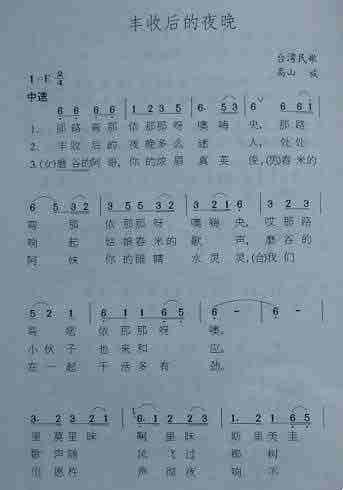 丰收后的夜晚
台湾民歌
高山
1=E 2/4
中速
6 6 6 6 1 2 3 5 6. 5 3 6 6 6 1
1. 那路弯那 依那那呀 噢嗨 央, 那路
2. 丰收后的 夜晚多么 迷 人, 处处
3.(女)磨谷的阿哥, 你的浓眉 真英 俊, (男)舂米的
6 5 3 2 1 2 1 2 3 5 6 5 3 2
弯 那 依那那呀 噢嗨央, 哎那路
响 起 姑娘舂米的 歌 声, 磨谷的
阿 妹 你的眼睛 水灵灵, (合)我们
5 2 1 6 1 2 3 1 2 1 6 6 - 6 -
弯 依那那呀 噢。
小伙子 也来和 应。
在一起 干活多有 劲。
3. 2 3 2 1 1. 2 2 3 1. 2 1 6 5
里莫里昧 啊里昧
歌声随 风飞过 椰树
声彻夜 响不